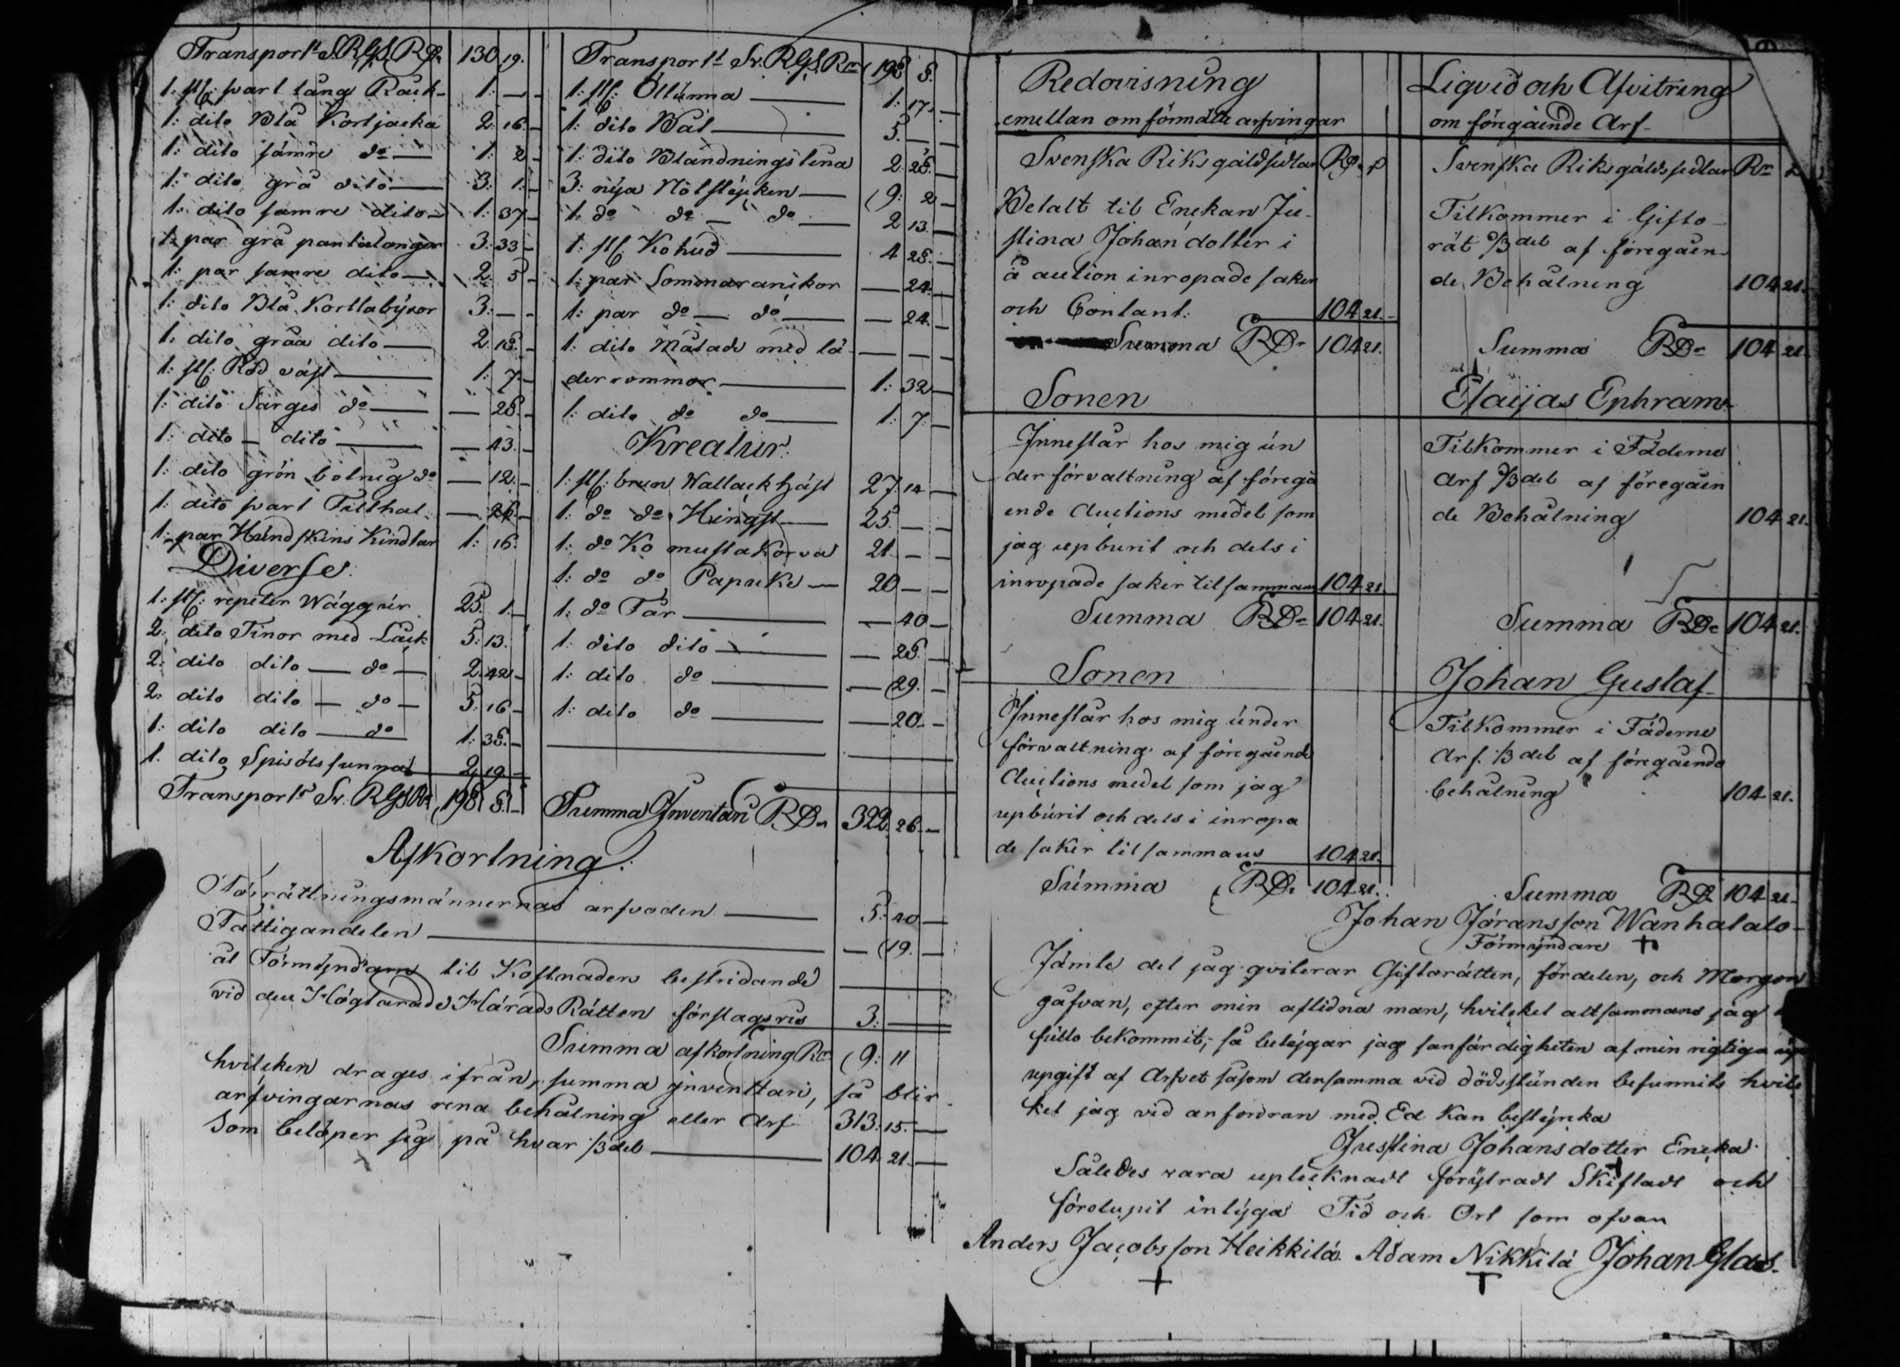 Transport S. RGS. RD. 130 19.
1. st. svart lång Råck 1. — -
1. dito Blå Kortjacka 2. 16. -
1. dito sämre do 1. 2 -
1. dito grå dito 3. 1. -
1. dito samre dito 1. 37 -
1. par grå pantalongor 3. 33 -
1. par samre dito 2. 5 -
1. dito Blå Kortlabyxor 3. — -
1. dito gråa dito 2. 18. -
1. st. Röd väst 1. 7. -
1. dito Sarges do — 28. -
1. dito — dito — 43. -
1. dito grön bolnug do — 12. -
1. dito svart Filthat — 26. -
1. par Hundskins Kindlar 1. 16.
Diverse.
1. st. repeter Wäggur 25. 1. -
2. dito Tinor med Låck 5. 13.
2. dito dito — do — 2. 42 -
2. dito dito — do — 5. 16 -
1. dito dito — do 1. 38. -
1. dito Spisöls 2. 19 -
Transport Sv. RGS Rd. 198. 8. -
Transport Sv. RGS. Rd. 198 8.
1. st. Öltunna 1. 17. —
1. dito Wäl 5. — —
1. dito Blandnings lena 2. 28. —
3. nya Nöt 9. 2 —
1. do do — do 2 13. —
1. st. Kohud 4 28. —
1. par Sommaranikor — 24. —
1. par do — do — 24. —
1. dito Målade med lä-
der rommor 1. 32 —
1. dito do do 1. 7. —
Kreatur.
1. st. brun Wallack häst 27. 14 —
1. do do Hingst 25. — —
1. do Ko mustakorva 21. — —
1. do do Papuke 20 — —
1. do Får — 40 —
1. dito dito — 28. —
1. dito do — 29. —
1. dito do — 20 —
Summa Inventari RD. 322. 26. —
Afkortning.
Förrättningsmännernas arfvoden 5. 40 —
Fattigandelen — 19. —
åt Förmyndare til Kostnaden bestridande
vid den Höglärade Härads Rätten förslagsvis 3. —
Summa afkortning Rd. 9. 11
hvilcken drages ifrån summa inventtari, så blir
arfvingarnas rena behålning eller Arf 313. 15. —
Som belöper sig på hvar ⅓del 104 21. —
Redovisning
emellan omförmälte arfvingar
Svenska Riksgäldsedlar RD. s
Betalt til Enckan Ju-
stina Johansdotter i
å auction inropade saker
och Contant: 104 21. -
Summa RD. 104 21.
Sonen
Inneslår hos mig un
der förvaltning af föregå
ende Auctions medel som
jag upburit och dels i
inropade saker tilsammans 104 21.
Summa RD. 104 21.
Sonen
Inneslår hos mig under
förvaltning af föregående
Auctions medel som jag
upburit och dels i inropa
de saker tilsammans 104 21.
Summa RD. 104 21.
Liqvid och Afvitring
om föregående Arf
Svenska Riksgäldssedlar Rd
Tilkommer i Gifto-
rät ⅓del af föregåen-
de Behålning 104 21.
Summa RD. 104 21.
Esaijas Ephram
Tilkommer i Fäderne
Arf ⅓del af föregåen
de Behålning 104 21.
Summa RD. 104 21.
Johan Gustaf
Tilkommer i Fäderne
Arf ⅓del af föregående
behålning 104 21.
Summa RD. 104 21.
Johan Jöransson Wanhatalo
Förmyndare +
Jämte det jag qviterar Giftorätten, fördelen, och Morgon
gåfvan, efter min aflidna man, hvilcket altsammans jag
fullo bekommit, så betygar jag sanfärdigheten af min rigtiga
upgift af Arfvet såsom densamma vid dödsstunden befunnits hvil
ket jag vid anfordran med Ed kan bestyrcka
Justina Johansdotter Encka
Således vara uptecknadt försträdt Skiftadt och
förelupit intyga Tid och Ort som ofvan
Anders Jacobsson Heikkilä Adam Nikkilä Johan Glad.
+ +